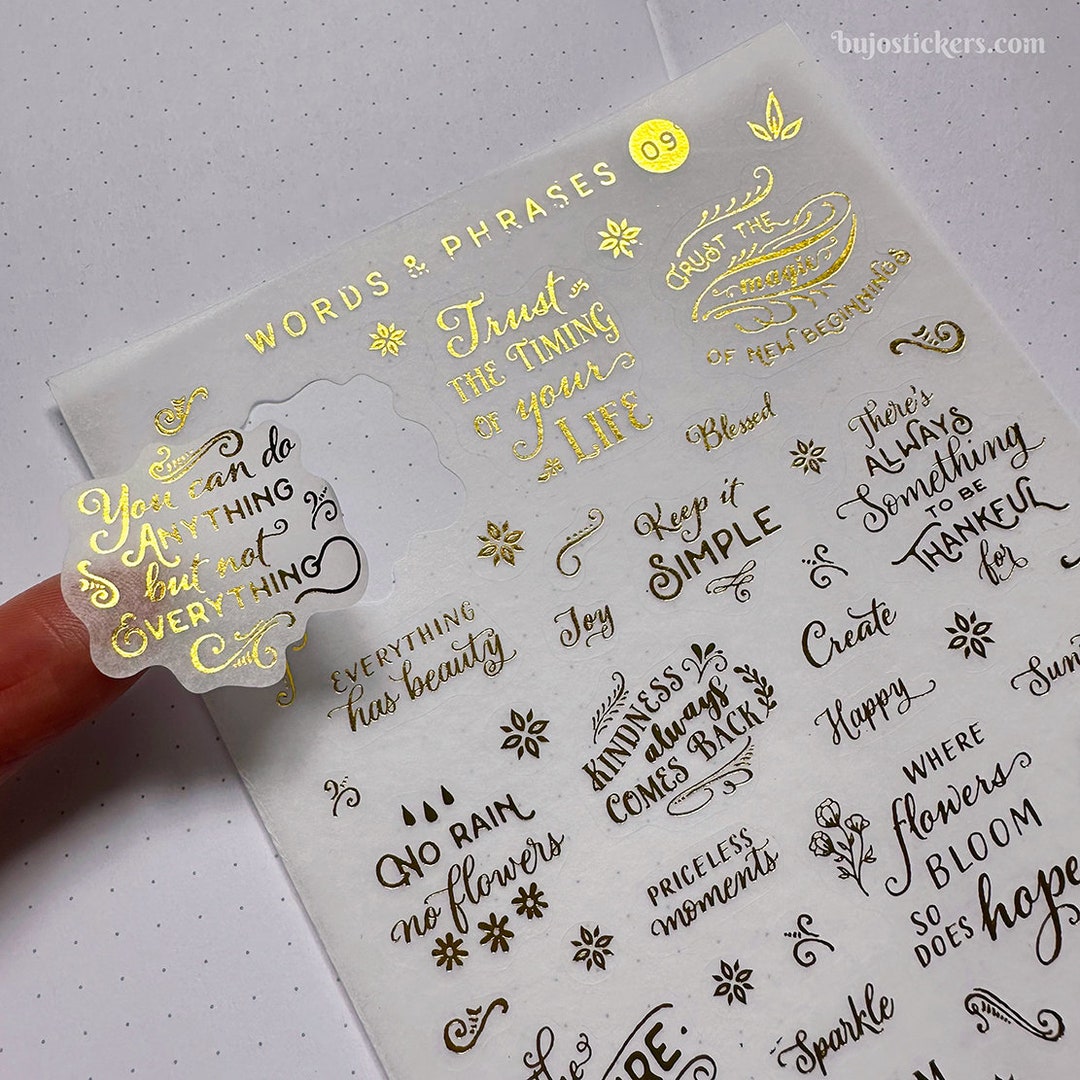 bujostickers.com
WORDS & PHRASES 09
TRUST THE
magic
OF NEW BEGINNINGS
Trust
THE TIMING
OF your
LIFE
You can do
ANYTHING
but not
EVERYTHING
Blessed
There's
ALWAYS
Something
TO BE
THANKFUL
for
Keep it
SIMPLE
Joy
EVERYTHING
has beauty
Create
KINDNESS
always
COMES BACK
Happy
WHERE
flowers
BLOOM
SO
DOES hope
NO RAIN
no flowers
PRICELESS
moments
Sparkle
the